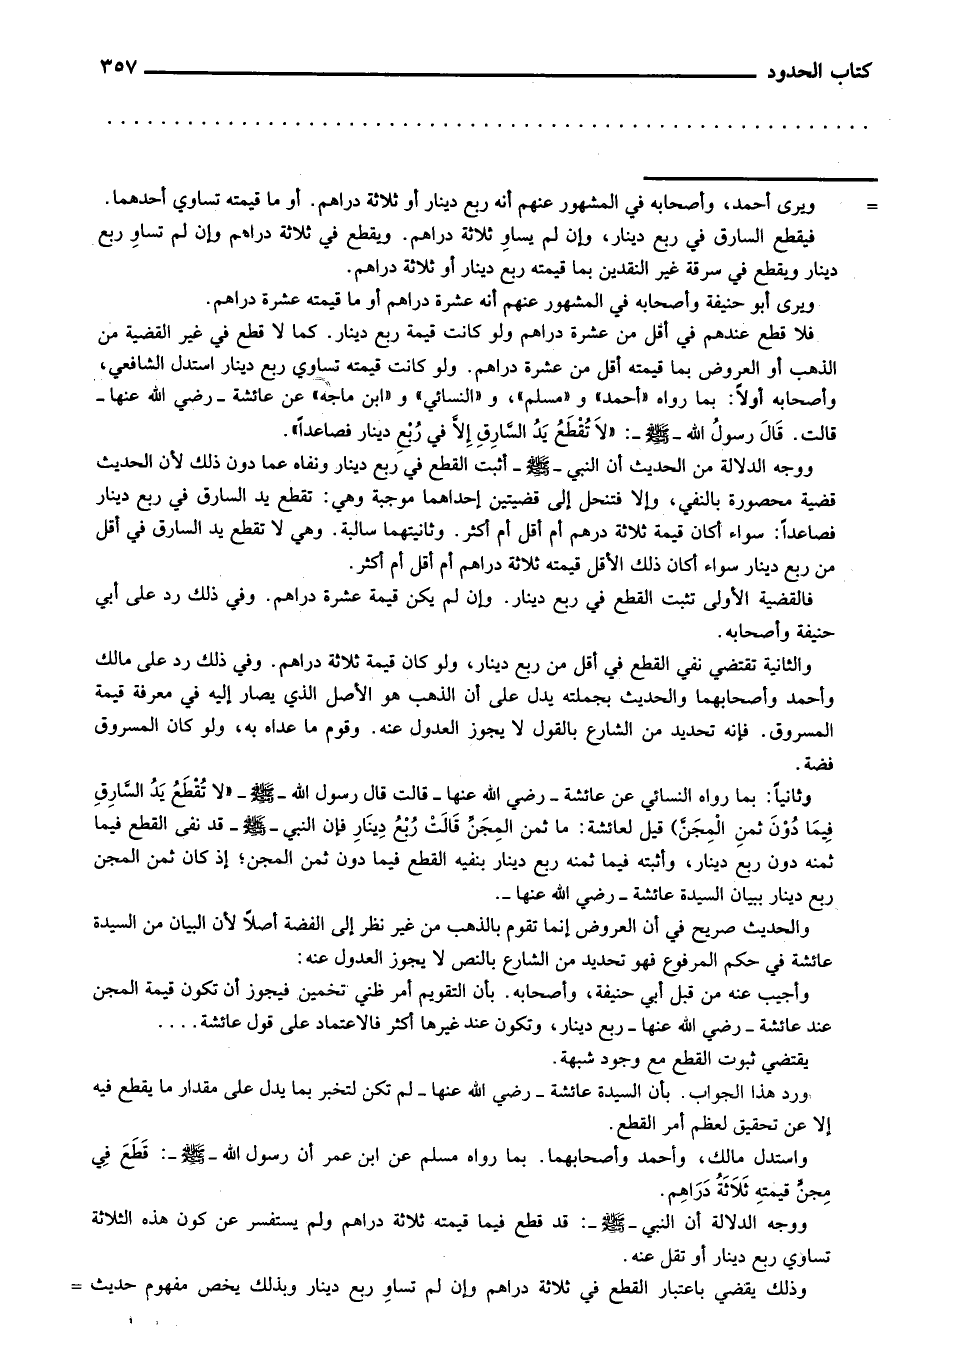 كتاب الحدود ٣٥٧
. . . . . . . . . . . . . . . . . . . . . . . . . . . . . . . . . . . . . . . . . . . . . . . . . . . . . . . .
= ويرى أحمد، وأصحابه في المشهور عنهم أنه ربع دينار أو ثلاثة دراهم. أو ما قيمته تساوي أحدهما.
فيقطع السارق في ربع دينار، وإن لم يساوِ ثلاثة دراهم. ويقطع في ثلاثة دراهم وإن لم تساوِ ربع
دينار ويقطع في سرقة غير النقدين بما قيمته ربع دينار أو ثلاثة دراهم.
ويرى أبو حنيفة وأصحابه في المشهور عنهم أنه عشرة دراهم أو ما قيمته عشرة دراهم.
فلا قطع عندهم في أقل من عشرة دراهم ولو كانت قيمة ربع دينار. كما لا قطع في غير القضية من
الذهب أو العروض بما قيمته أقل من عشرة دراهم. ولو كانت قيمته تساوي ربع دينار استدل الشافعي،
وأصحابه أولاً: بما رواه «أحمد» و «مسلم»، و «النسائي» و «ابن ماجه» عن عائشة ـ رضي الله عنها ـ
قالت. قَالَ رسولُ الله ـ ﷺ ـ: «لاَ تُقْطَعُ يَدُ السَّارِقِ إِلاَّ في رُبْعِ دينار فصاعداً».
ووجه الدلالة من الحديث أن النبي ـ ﷺ ـ أثبت القطع في ربع دينار ونفاه عما دون ذلك لأن الحديث
قضية محصورة بالنفي، وإلا فتنحل إلى قضيتين إحداهما موجبة وهي: تقطع يد السارق في ربع دينار
فصاعداً: سواء أكان قيمة ثلاثة درهم أم أقل أم أكثر. وثانيتهما سالبة. وهي لا تقطع يد السارق في أقل
من ربع دينار سواء أكان ذلك الأقل قيمته ثلاثة دراهم أم أقل أم أكثر.
فالقضية الأولى تثبت القطع في ربع دينار. وإن لم يكن قيمة عشرة دراهم. وفي ذلك رد على أبي
حنيفة وأصحابه.
والثانية تقتضي نفي القطع في أقل من ربع دينار، ولو كان قيمة ثلاثة دراهم. وفي ذلك رد على مالك
وأحمد وأصحابهما والحديث بجملته يدل على أن الذهب هو الأصل الذي يصار إليه في معرفة قيمة
المسروق. فإنه تحديد من الشارع بالقول لا يجوز العدول عنه. وقوم ما عداه به، ولو كان المسروق
فضة.
وثانياً: بما رواه النسائي عن عائشة ـ رضي الله عنها ـ قالت قال رسول الله ـ ﷺ ـ «لا تُقْطَعُ يَدُ السَّارِقِ
فِيمَا دُوْنَ ثمنِ الْمِجَنَّ) قيل لعائشة: ما ثمن المِجَنِّ قَالَتْ رُبْعُ دِينَارٍ فإن النبي ـ ﷺ ـ قد نفى القطع فيما
ثمنه دون ربع دينار، وأثبته فيما ثمنه ربع دينار بنفيه القطع فيما دون ثمن المجن؛ إذ كان ثمن المجن
ربع دينار ببيان السيدة عائشة ـ رضي الله عنها ـ.
والحديث صريح في أن العروض إنما تقوم بالذهب من غير نظر إلى الفضة أصلاً لأن البيان من السيدة
عائشة في حكم المرفوع فهو تحديد من الشارع بالنص لا يجوز العدول عنه:
وأجيب عنه من قبل أبي حنيفة، وأصحابه. بأن التقويم أمر ظني تخمين فيجوز أن تكون قيمة المجن
عند عائشة ـ رضي الله عنها ـ ربع دينار، وتكون عند غيرها أكثر فالاعتماد على قول عائشة. . . .
يقتضي ثبوت القطع مع وجود شبهة.
ورد هذا الجواب. بأن السيدة عائشة ـ رضي الله عنها ـ لم تكن لتخبر بما يدل على مقدار ما يقطع فيه
إلا عن تحقيق لعظم أمر القطع.
واستدل مالك، وأحمد وأصحابهما. بما رواه مسلم عن ابن عمر أن رسول الله ـ ﷺ ـ: قَطَعَ فِي
مِجنٍّ قيمتهِ ثَلاَثَةُ دَرَاهِم.
ووجه الدلالة أن النبي ـ ﷺ ـ: قد قطع فيما قيمته ثلاثة دراهم ولم يستفسر عن كون هذه الثلاثة
تساوي ربع دينار أو تقل عنه.
وذلك يقضي باعتبار القطع في ثلاثة دراهم وإن لم تساوِ ربع دينار وبذلك يخص مفهوم حديث =